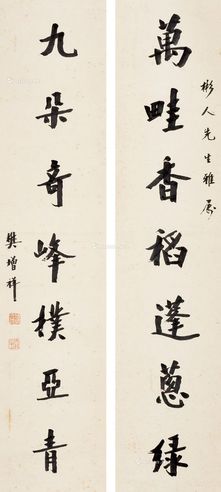 彬人先生雅屬
萬畦香稻蓬蔥綠
九朵奇峰樸亞青
樊增祥